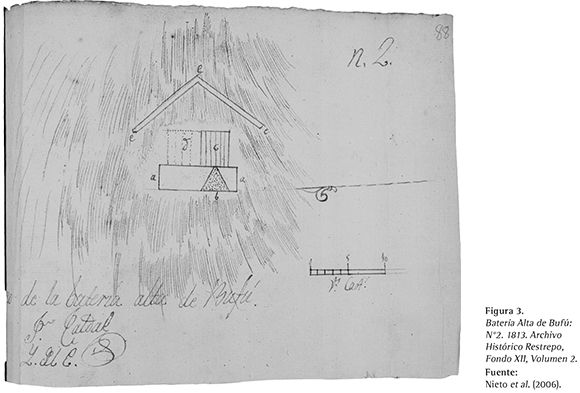 88
n. 2.
e
e
c
d
c
a
a
b
5
10
de la bateria alta de Bufú.
Figura 3.
Batería Alta de Bufú:
N°2. 1813. Archivo
Histórico Restrepo,
Fondo XII, Volumen 2.
Fuente:
Nieto et al. (2006).